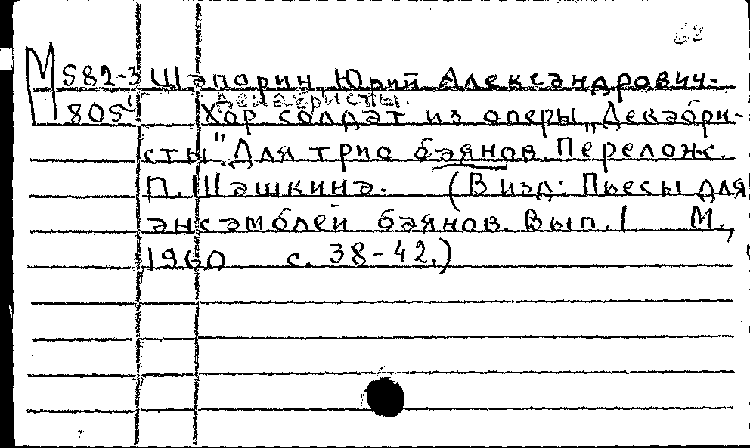 62
М 582-3 Шапорин, Юрий Александрович.
Декабристы.
805 Хор солдат из оперы „Декабри-
сты". Для трио баянов. Перелож.
П. Шашкина. (В изд: Пьесы для
ансамблей баянов. Вып. 1 М.,
1960 с. 38-42.)